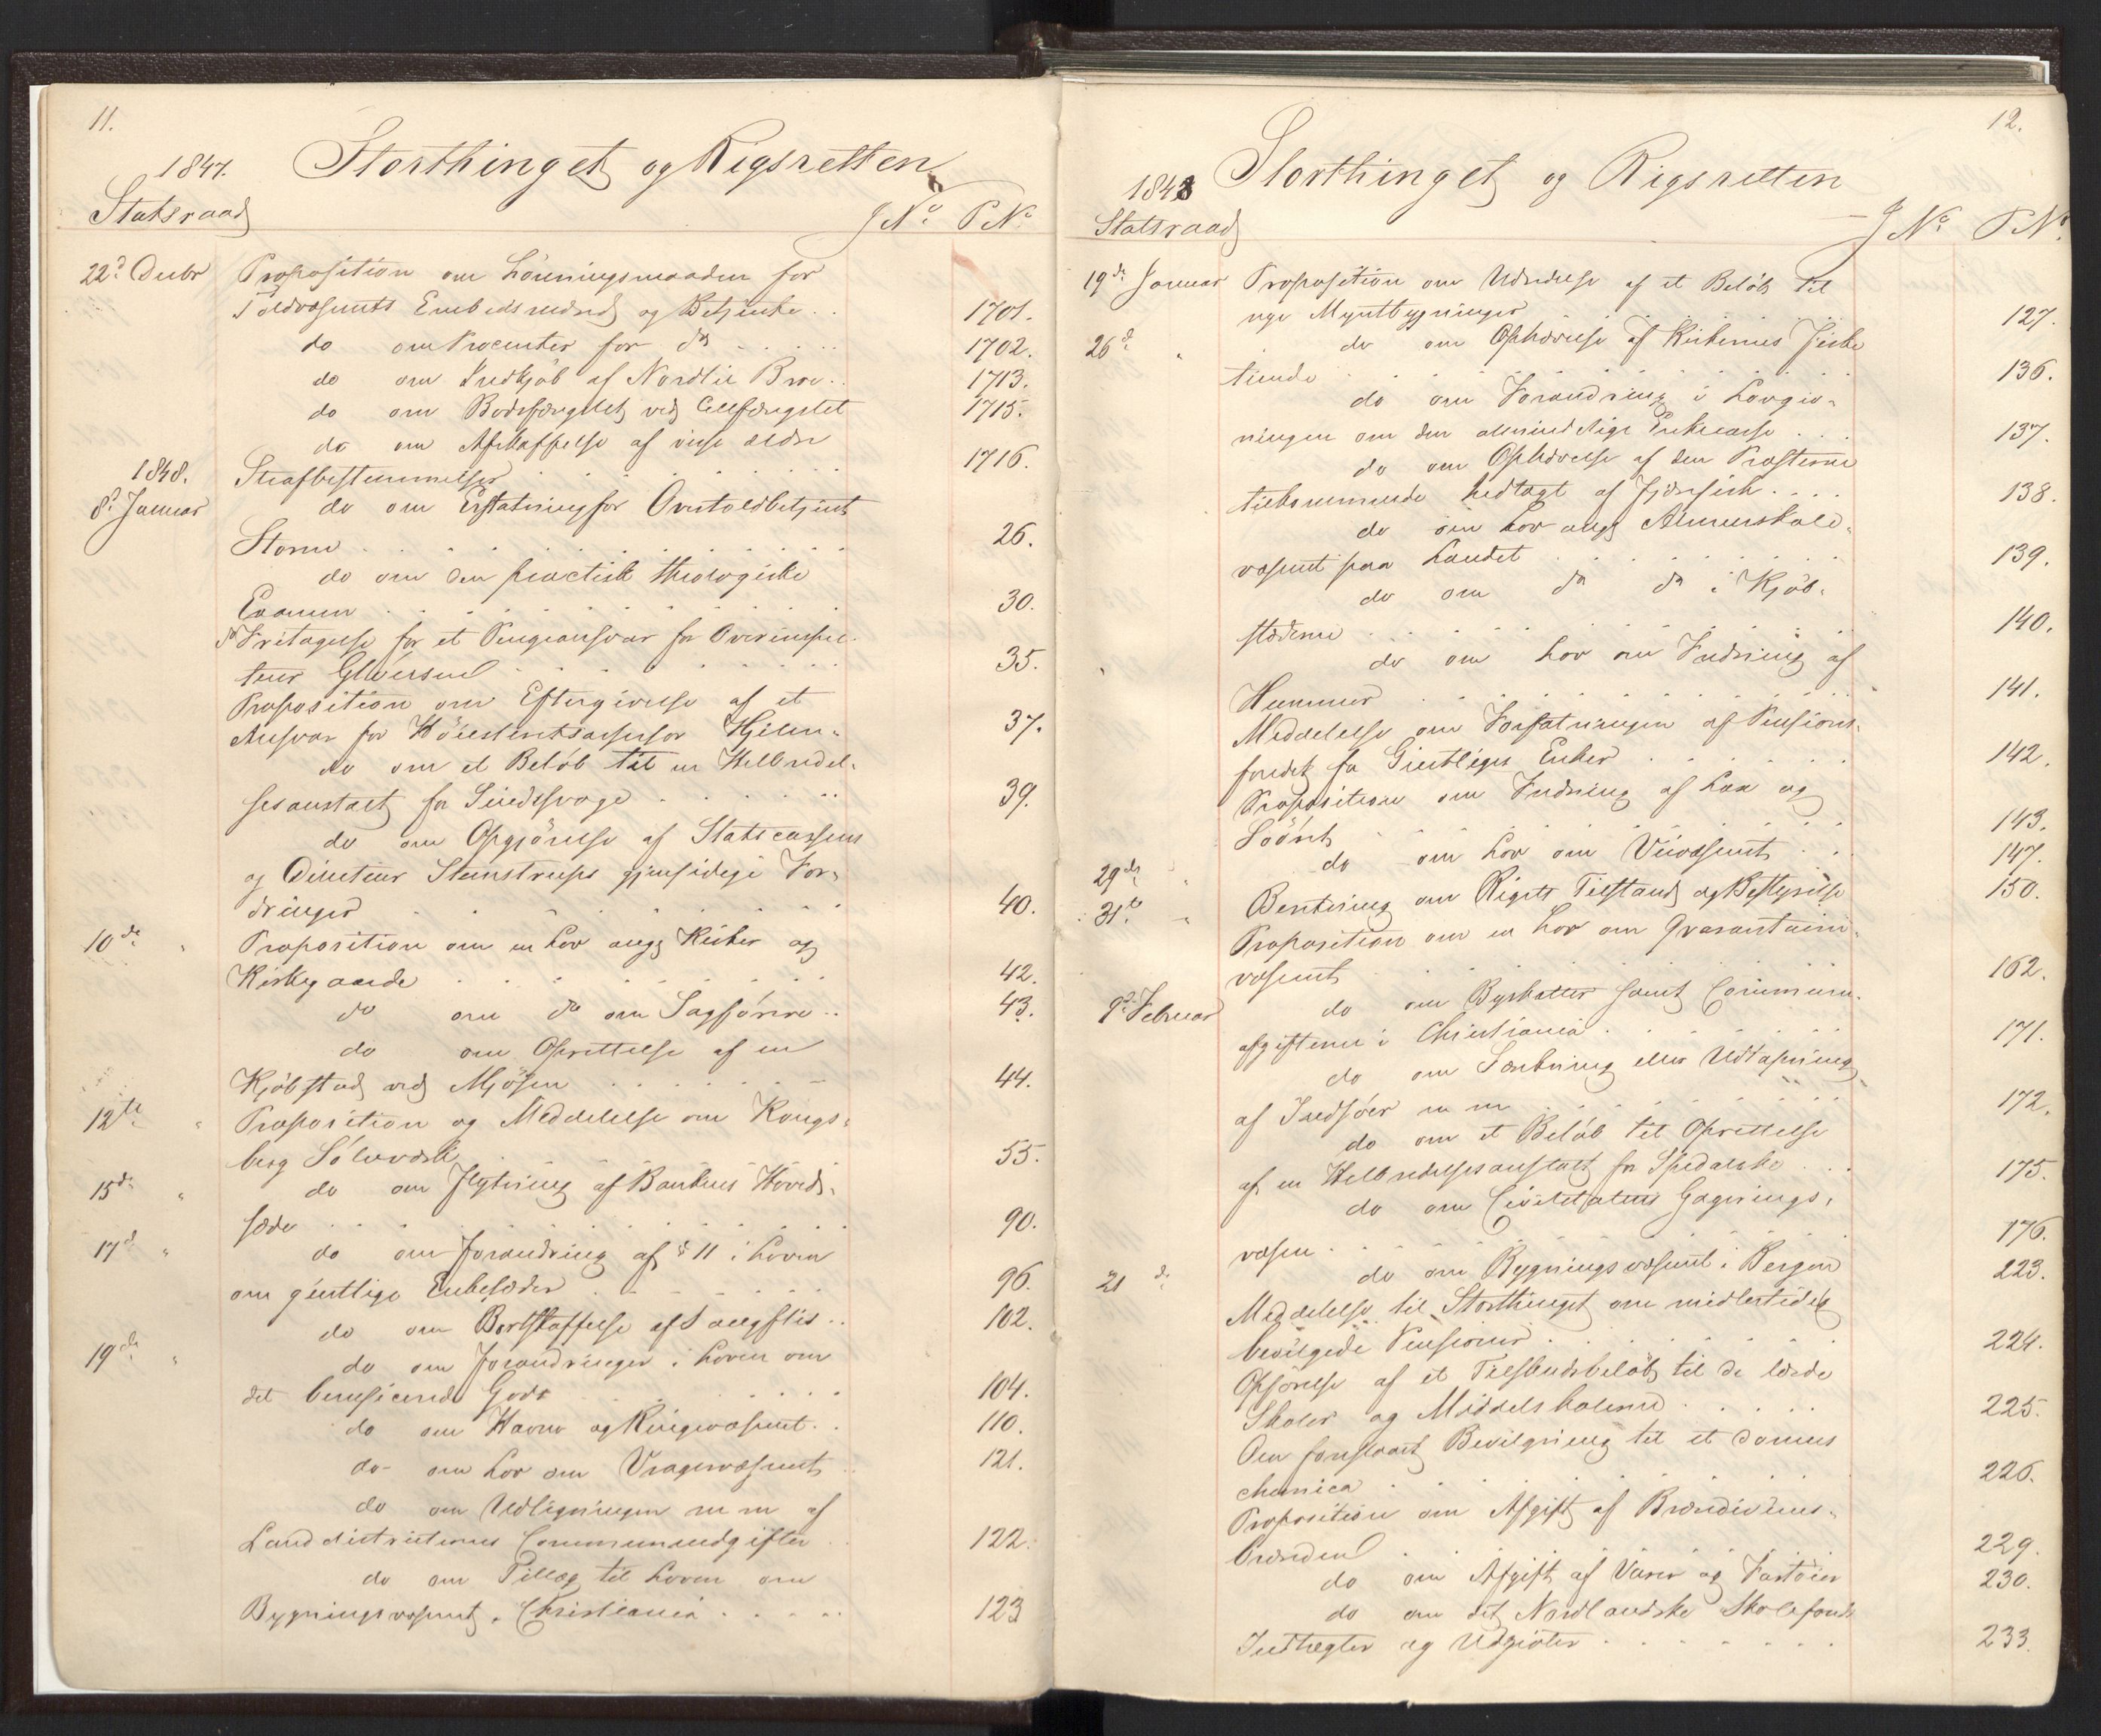 11.
1847. Storthinget og Rigsretten
Statsraad J No. P No.
22d Decbr Proposition om Lönningsmaaden for
Toldvæsenets Embedsmænd og Betjente . . 1701.
do om Procenter for do . . . . . 1702.
do om Indkjöb af Nordlie Brve . . 1713.
do om Bodsfængslet ved Cellefængslet 1715.
do om Afskaffelse af visse ældre
1848. Strafbestemmelser . . . . . . 1716.
8d Januar do om Erstatning for Overtoldbetjent
Storm . . . . . . . . . . 26.
do om den practisk theologiske
Examen . . . . . . . . . . 30.
do Fritagelse for et Pengeansvar for Overinspec-
teur . . . . . . . 35.
Proposition om Eftergivelse af et
Ansvar for Höiesteretsassessor Hjelm- 37.
do om et Belöb til en Helbredel-
sesanstalt for Sindssvage . . . . . . 39.
do om Opgjörelse af Statscassens
og Directeur Steenstrups gjensidige For-
dringer . . . . . . . . . 40.
10de " Proposition om en Lov angd Kirker og
Kirkegaarde . . . . . . . . 42.
do om do om Sagförere . . 43.
do om Oprettelse af en
Kjöbstad ved Mjösen . . . . . . 44.
12te " Proposition og Meddelelse om Kongs-
berg Sölvværk . . . . . . . 55.
15de " do om Flytning af Bankens Hoved-
sæde . . . . . . . . . . 90.
17de " do om Forandring af § 11 i Loven
om geistlige Enkesæder . . . . . . 96.
do om Bortskaffelse af Saugflis . . 102.
19de " do om Forandringer i Loven om
det beneficerede Gods . . . . . . 104.
do om Havne og Ringevæsenet . . 110.
do om Lov om Vragervæsenet . . 121.
do om Udligningen m m af
Landdistricternes Communeudgifter . . 122.
do om Tillæg til Loven om
Bygningsvæsenet i Christiania . . . . . 123
12.
1848 Storthinget og Rigsretten
Statsraad J No. P No.
19de Januar Proposition om Udredelse af et Belöb til
nye Myntbygninger . . . . . . 127.
26de " do om Ophævelse af Kirkernes Fiske
tiende . . . . . . . . . . 136.
do om Forandring i Lovgiv-
ningen om den almindelige Enkecasse . . . 137.
do om Ophævelse af den Præsterne
tilkommende Andtagt af Fjærfisk . . . . 138.
do om Lov angd Almueskole-
væsenet paa Landet . . . . . . . 139.
do om do do i Kjöb-
stæderne . . . . . . . . . 140.
do om Lov om Fredning af
Hummer . . . . . . . . . 141.
Meddelelse om Forfatningen af Pensions-
fondet for Geistliges Enker . . . . . 142.
Proposition om Fredning af Lax og
Söörret . . . . . . . . . 143.
29de " do om Lov om Veivæsenet . . 147.
31te " Beretning om Rigets Tilstand og Bestyrelse 150.
Proposition om en Lov om Qvarantaine-
væsenet . . . . . . . . . 162.
9de Februar do om Byskatter samt Commune-
afgifterne i Christiania . . . . . 171.
do om Sænkning eller Udtapning
af Indsöer m m . . . . . . 172.
do om et Belöb til Oprettelse
af en Helbredelsesanstalt for Spedalske . . . 175.
do om Civiletatens Gagerings-
væsen . . . . . . . . . . 176.
21de do om Bygningsvæsenet i Bergen 223.
Meddelelse til Storthinget om midlertidig
bevilgede Pensioner . . . . . . . 224.
Opförelse af et Tilskudsbelöb til de lærde
Skoler og Middelskolerne . . . . . 225.
Om forslaaet Bevilgning til et domus
chemica . . . . . . . . . 226.
Proposition om Afgift af Brændeviins-
brænden . . . . . . . . . 229.
do om Afgift af Varer og Fartöier 230.
do om det Nordlandske Skolefonds
Indtægter og Udgivter . . . . . . . 233.